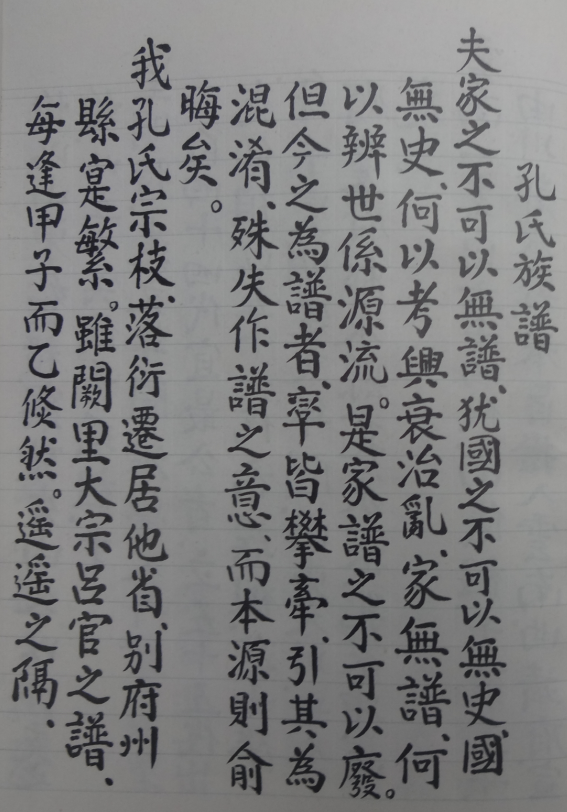 孔氏族譜
夫家之不可以無譜、犹國之不可以無史、國
無史、何以考興衰治亂、家無譜、何
以辨世係源流。是家譜之不可以廢。
但今之為譜者、率皆攀牽、引其為
混淆、殊失作譜之意、而本源則俞
晦矣。
我孔氏宗枝、落衍遷居他省、别府州
縣寔繁。雖闕里大宗呂官之譜、
每逢甲子而乙修然。遥遥之隔、